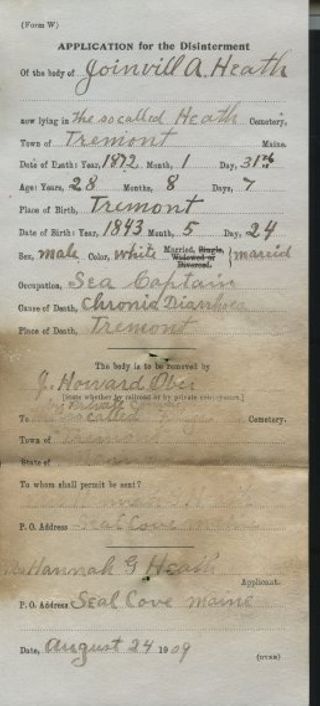 (Form W)
APPLICATION for the Disinterment
Of the body of Joinvill A. Heath
now lying in the so called Heath Cemetery,
Town of Tremont Maine.
Date of Death: Year, 1872, Month, 1 Day, 31st
Age: Years, 28 Months, 8 Days, 7
Place of Birth, Tremont
Date of Birth: Year, 1843 Month, 5 Day, 24
Sex, male Color, white Married, Single, Widowed or Divorced. married
Occupation, Sea Captain
Cause of Death, Chronic Diarrhoea
Place of Death, Tremont
The body is to be removed by
J. Howard Ober
[State whether by railroad or by private conveyance.]
by Private
To so called Cemetery.
Town of Tremont
State of
To whom shall permit be sent?
P. O. Address Seal Cove Maine
Hannah G Heath
Applicant.
P. O. Address Seal Cove Maine
Date, August 24 1909
(OVER)